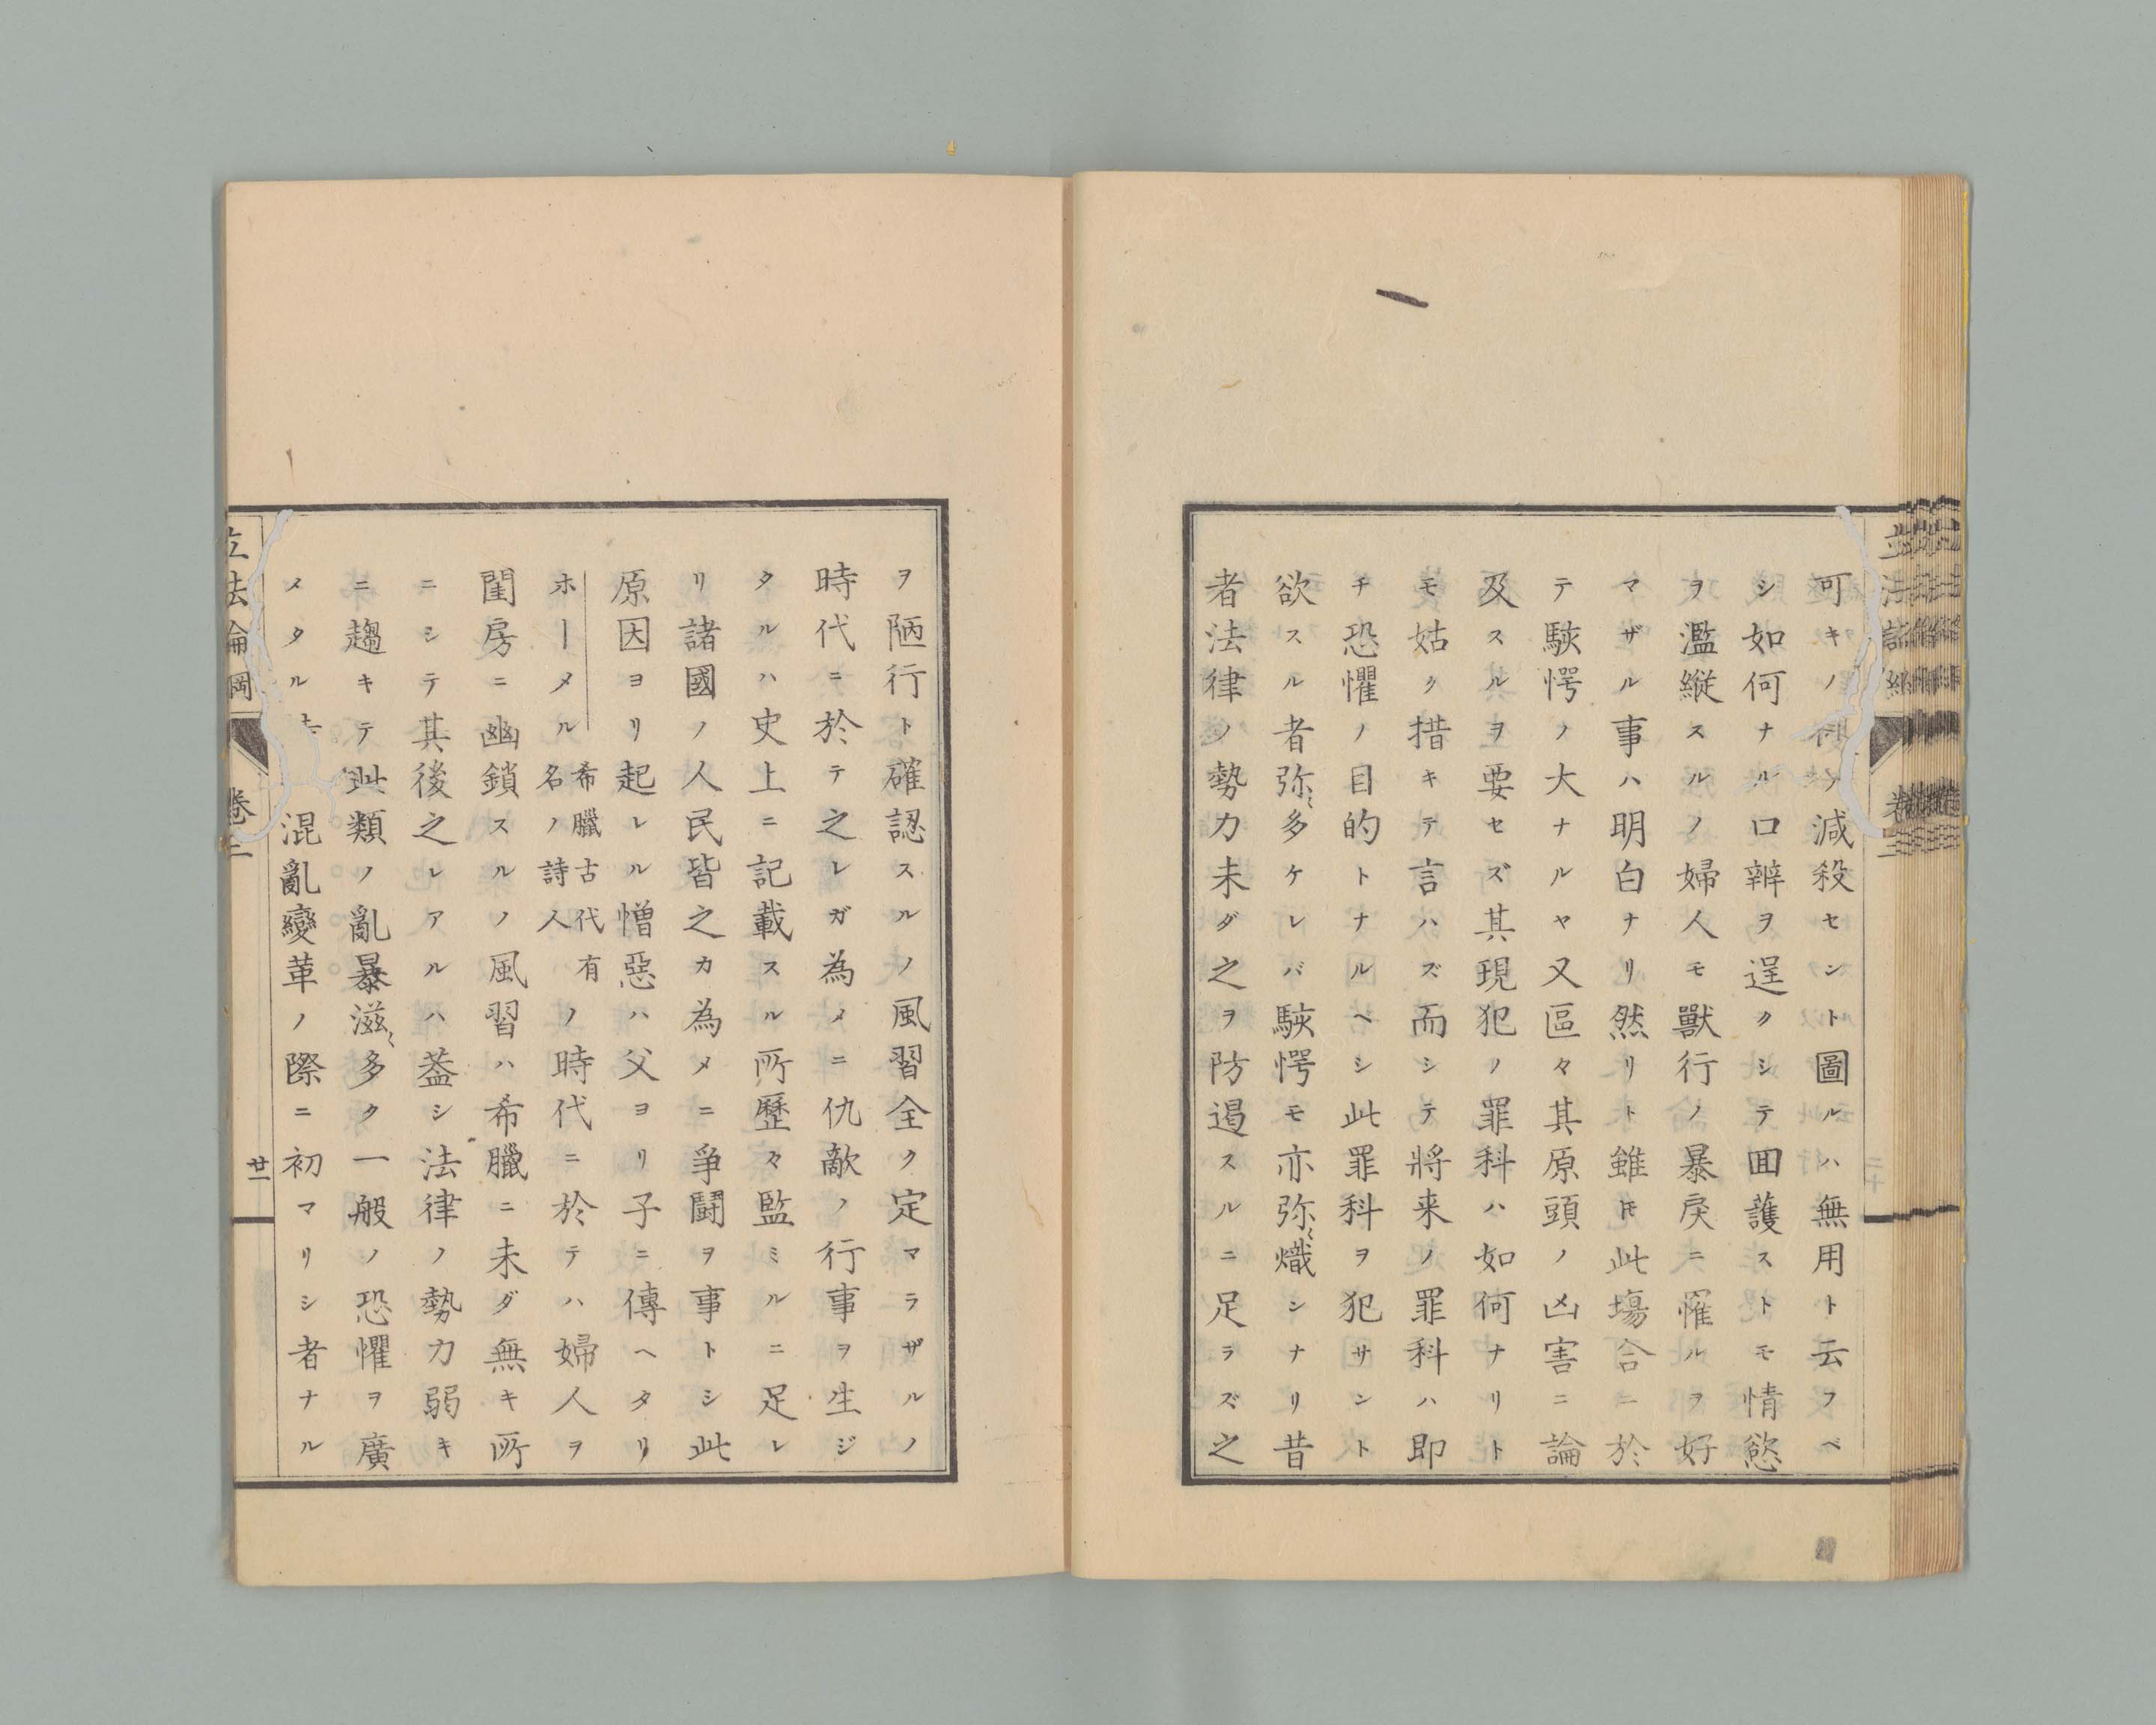 可キノ ヲ減殺セント圖ルハ無用ト云フベ
シ如何ナル口辨ヲ逞クシテ囬護ストモ情慾
ヲ濫縱スルノ婦人モ獸行ノ暴戻ニ罹ルヲ好
マザル事ハ明白ナリ然リト雖𪜈此塲合ニ於
テ駭愕ノ大ナルヤ又區々其原頭ノ凶害ニ論
及スルヲ要セズ其現犯ノ罪科ハ如何ナリト
モ姑ク措キテ言ハズ而シテ將来ノ罪科ハ即
チ恐懼ノ目的トナルヘシ此罪科ヲ犯サント
欲スル者弥〻多ケレバ駭愕モ亦弥〻熾ンナリ昔
者法律ノ勢力未ダ之ヲ防遏スルニ足ラズ之
ヲ陋行ト確認スルノ風習全ク定マラザルノ
時代ニ於テ之レガ為メニ仇敵ノ行事ヲ生ジ
タルハ史上ニ記載スル所歴々監ミルニ足レ
リ諸國ノ人民皆之カ為メニ爭鬪ヲ事トシ此
原因ヨリ起レル憎惡ハ父ヨリ子ニ傳ヘタリ
ホーメル希臘古代有名ノ詩人ノ時代ニ於テハ婦人ヲ
閨房ニ幽鎖スルノ風習ハ希臘ニ未ダ無キ所
ニシテ其後之レアルハ葢シ法律ノ勢力弱キ
ニ趨キテ此類ノ亂暴滋〻多ク一般ノ恐懼ヲ廣
メタル 混亂變革ノ際ニ初マリシ者ナル
立法論綱
卷二
廿一